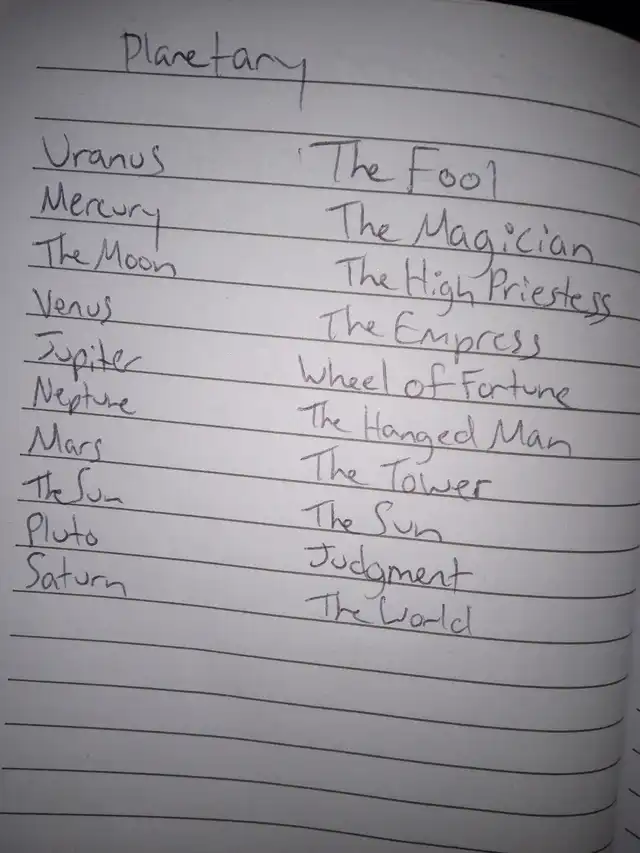 Planetary
Uranus The Fool
Mercury The Magician
The Moon The High Priestess
Venus The Empress
Jupiter Wheel of Fortune
Neptune The Hanged Man
Mars The Tower
The Sun The Sun
Pluto Judgment
Saturn The World